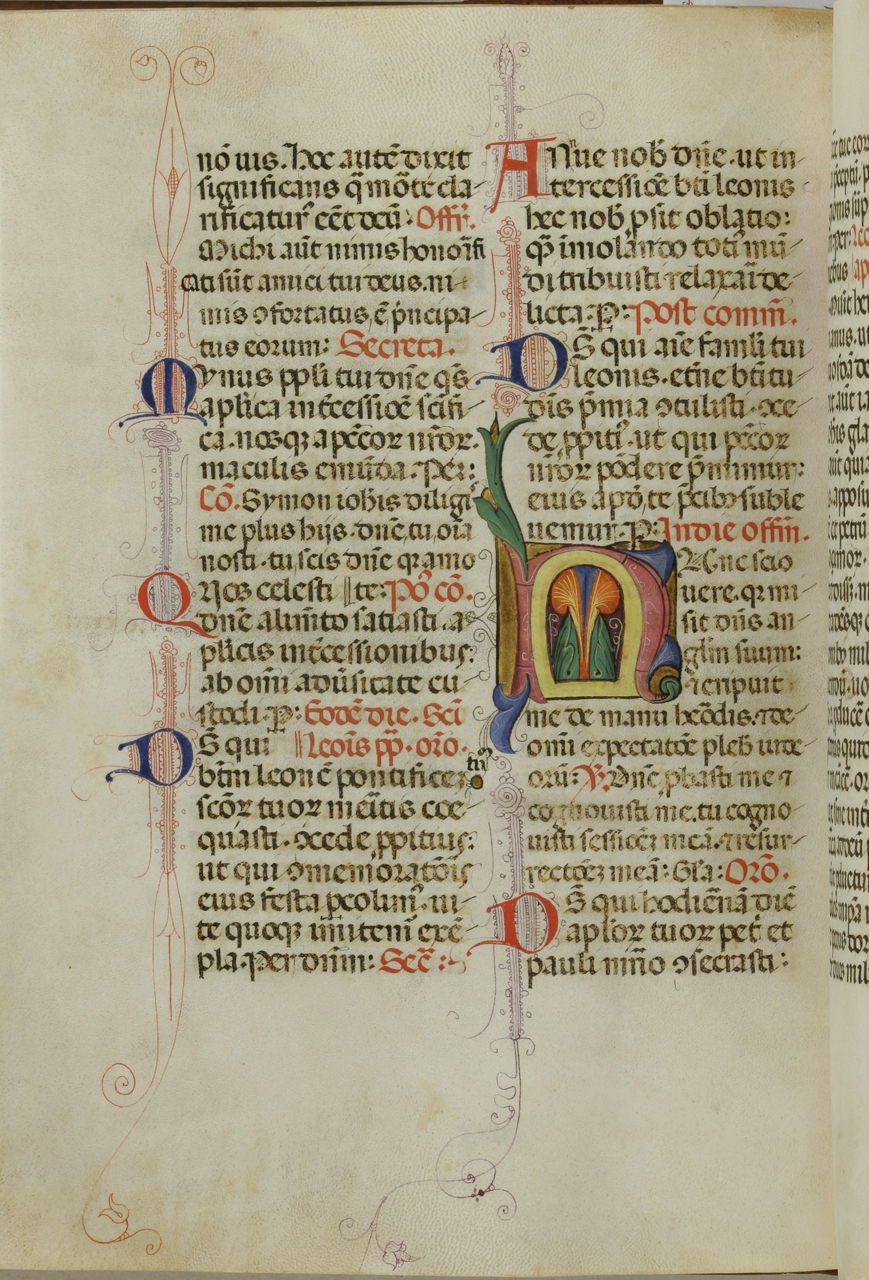 nō uis. hoc autē dixit
significans q̄ mōte cla
rificatur᾽ eēt deū: Offr̄.
Michi aūt nimis honorīfi
cati sūt amici tui deus. ni
mis ꝯfortatus, ē p̄ncipa
tus eorum: Secreta.
Mvnus ppl̄i tui dn̄e q̄s
aplica int̄cessiōē scīfi
ca. nosqꝫ a pc̄cor nr̄or.
maculis emūda. Per:
Cō. Symon iohis diligi
me plus hijs. dn̄e, tu, oīa
nosti. tu scis dn̄e qr amo
Qvos celesti te: Pō cō.
dn̄e alimēto satiasti. a
pl̄icis int̄cessionibus:
ab om̄i adūsitate cu
stodi. P: Eodē die. Scī
DS̄ qui Leōis pp. orō.
btm̄ leonē pontificeꝫ tu
scōr tuor mēitis coe
quasti. ꝯcede ppitius:
ut qui ꝯmemoratōis
eius festa pcolim᾽. ui
te quoqꝫ imitem᾽ exē
pla. Per dn̄m: Secr̄:
ANnue nob̄ dn̄e. ut in
tercessiōē bt̄i leonis
hec nob̄ psit oblatio:
q̄ īmolādo toti᾽ mū
di tribuisti relaxari de
licta. P: Post commīn.
DS̄ qui aīe famli tui
leonis. et̄ne bt̄itu
dīs p̄mia ꝯtulisti. ꝯce
de, ppiti᾽. ut qui pc̄cor
nr̄or pōdere p̄mimur:
eius apđ, te p̄cibꝫ suble
uemur. P: In die offim̄.
NVnc scio
uere. qr mi
sit dn̄s an
glm̄ suum:
et eripuit
me de manu herōdis. et de
omī expectatōe pleb iude
orū: Ps. Dn̄e pbasti me et
cognouisti me. tu cogno
uisti sessioēꝫ meā. et resur
rectōeꝫ meā: Gl̄a: Orō.
DS̄ qui hodiernā diē
aplor tuor pet᾽ et
pauli m̄rio ꝯsecrasti: